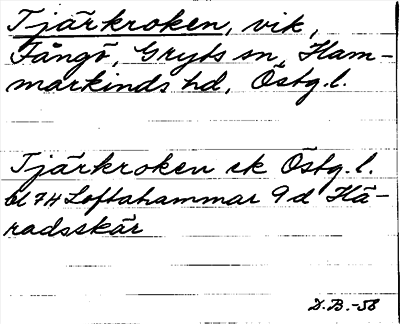 Tjärkroken, vik,
Fångö, Gryts sn, Ham-
markinds hd, Östg. l.
Tjärkroken ek Östg. l.
bl 7H Loftahammar 9 d Hä-
radsskär
D.B.-58